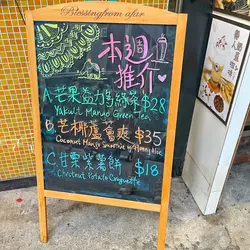 Blessing from afar
本週
推介
A. 芒果益力多綠茶 $28
Yakult Mango Green Tea
B. 芒椰蘆薈爽 $35
Coconut Mango Smoothie w/
C. 甘栗紫薯餅 $18
Chestnut Potato Croquette